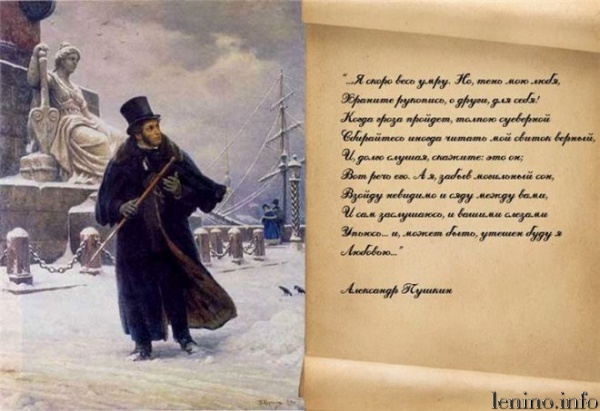 "...Я скоро весь умру. Но, тень мою любя,
Храните рукопись, о други, для себя!
Когда гроза пройдет, толпою суеверной
Сбирайтесь иногда читать мой свиток верный,
И, долго слушая, скажите: это он;
Вот речь его. А я, забыв могильный сон,
Взойду невидимо и сяду между вами,
И сам заслушаюсь, и вашими слезами
Упьюсь... и, может быть, утешен буду я
Любовью..."
Александр Пушкин
lenino.info